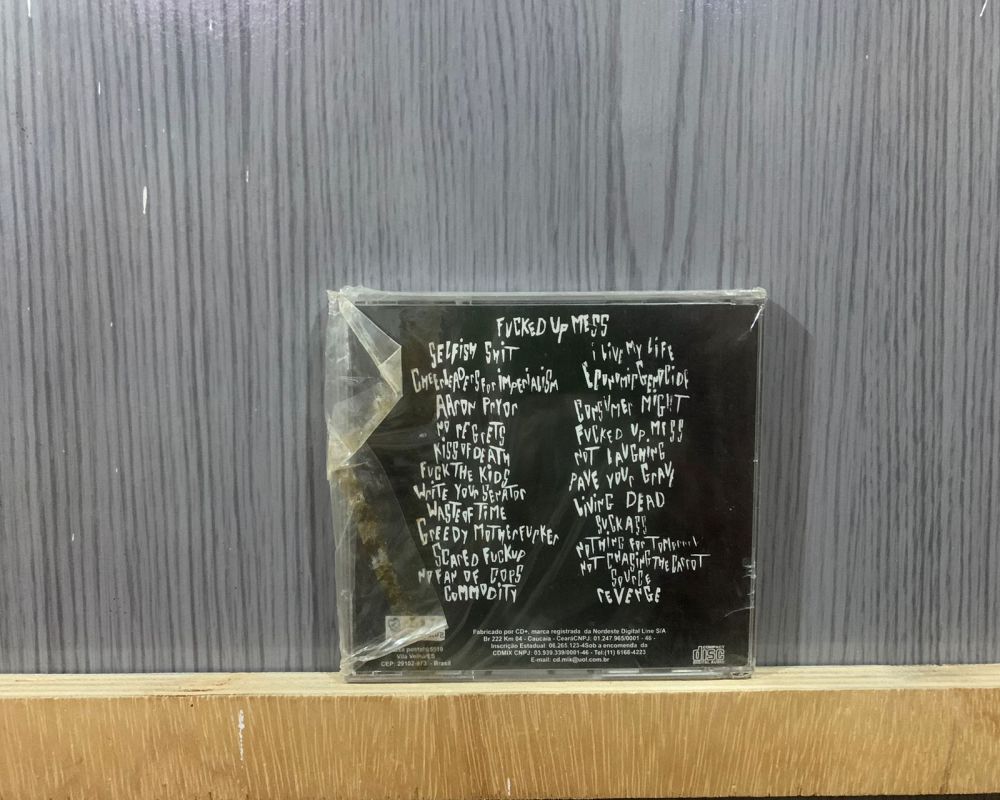 FUCKED UP MESS
SELFISH SHIT
CHEERLEADERS FOR IMPERIALISM
AARON PRYOR
NO REGRETS
KISS OF DEATH
FUCK THE KIDS
WRITE YOUR SENATOR
WASTE OF TIME
GREEDY MOTHERFUCKER
SCARED FUCKUP
NO FAN OF COPS
COMMODITY
i LIVE MY LIFE
ECONOMIC GENOCIDE
CONSUMER MIGHT
FUCKED UP MESS
NOT LAUGHING
PAVE YOUR GRAVE
LIVING DEAD
SUCKASS
NOTHING FOR TOMORROW
NOT CHASING THE CARROT
SOURCE
REVENGE
postal 5519
Vila Velha/ES
CEP: 29102-973 - Brasil
Fabricado por CD+, marca registrada da Nordeste Digital Line S/A
Br 222 Km 04 - Caucaia - CearáCNPJ: 01.247.965/0001 - 46 -
Inscrição Estadual: 06.265.123-4Sob a encomenda da
CDMIX CNPJ: 03.939.339/0001-46 - Tel:(11) 6168-4223
E-mail: cd.mix@uol.com.br
COMPACT
disc
DIGITAL AUDIO